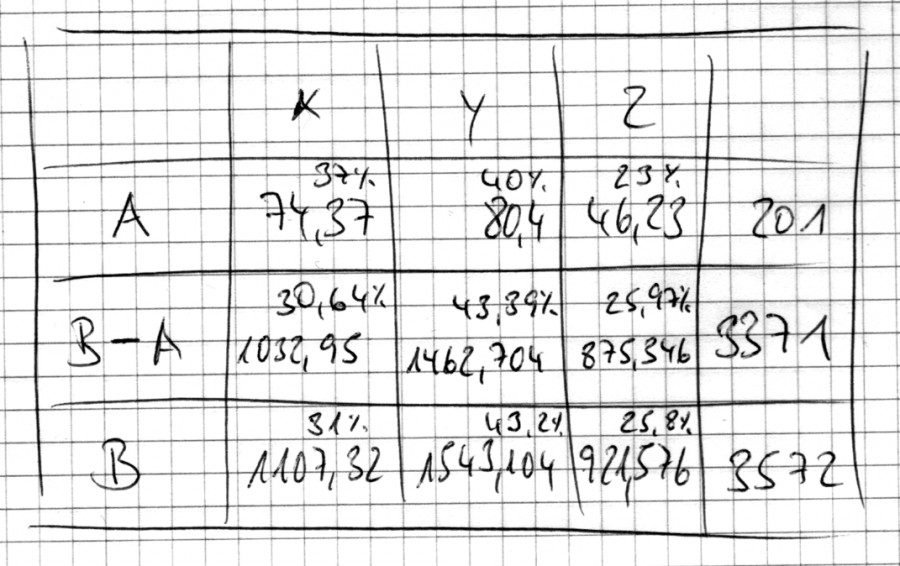 X Y Z
37% 40% 23%
A 74,37 80,4 46,23 201
30,64% 43,39% 25,97%
B-A 1032,95 1462,704 875,346 3371
31% 43,2% 25,8%
B 1107,32 1543,104 921,576 3572